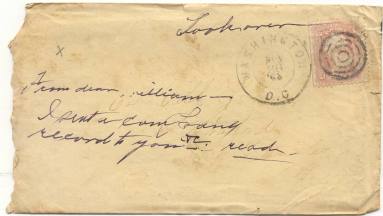 Look over
WASHINGTON
D.C
x
From dear William
I sent a com
record to you to read.